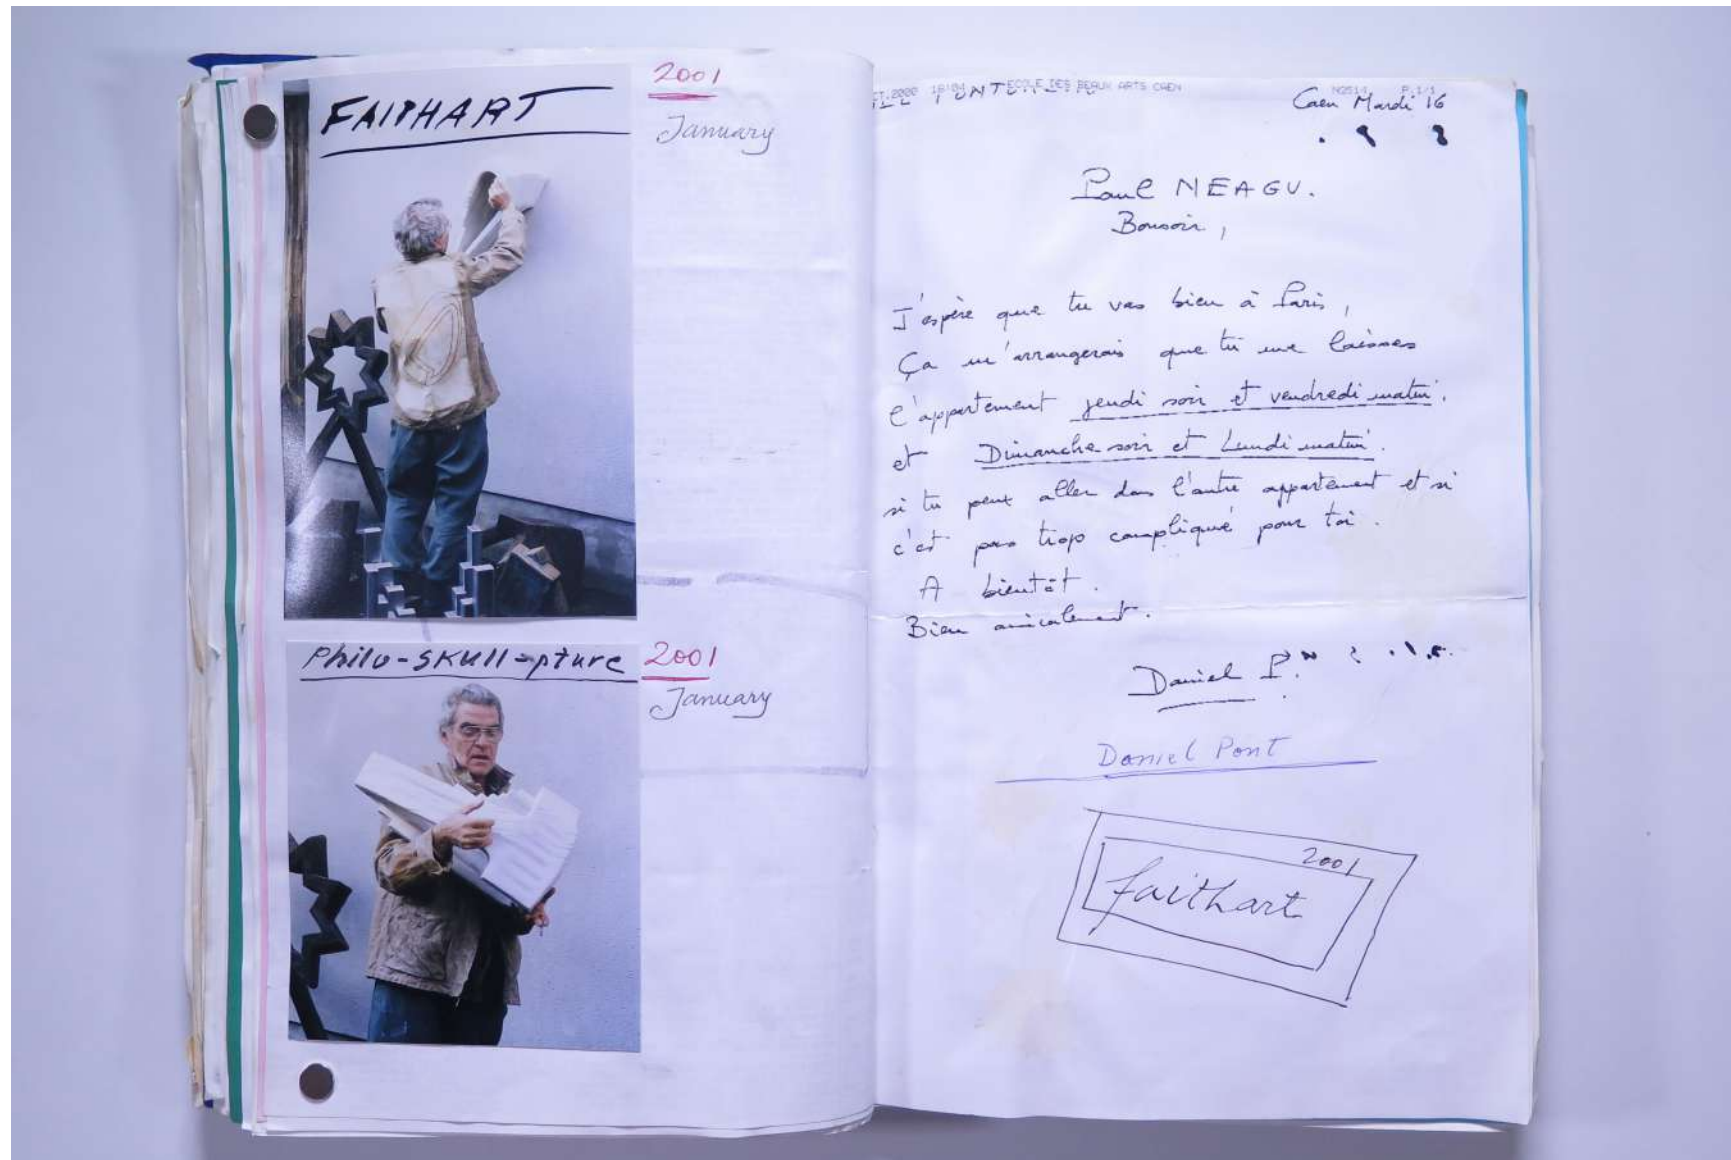 FAITHART
2001
January
Philo-SKULL-pture
2001
January
2000 18:04 ECOLE DES BEAUX ARTS CAEN N0514 P.1/1
Caen Mardi 16
Paul NEAGU.
Bonsoir,
J'espère que tu vas bien à Paris,
Ça m'arrangerais que tu me laisses
l'appartement jeudi soir et vendredi matin.
et Dimanche soir et Lundi matin.
si tu peux aller dans l'autre appartement et si
c'est pas trop compliqué pour toi.
A bientôt.
Bien amicalement.
Daniel P.
Daniel Pont
2001
faithart